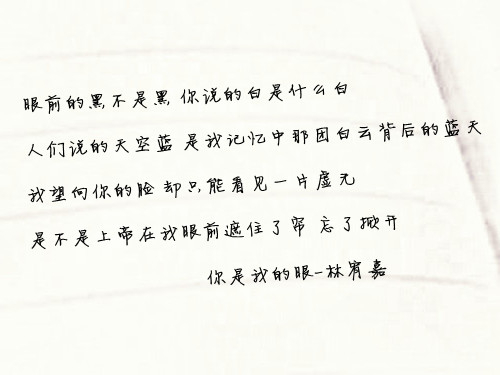 眼前的黑不是黑 你说的白是什么白
人们说的天空蓝 是我记忆中那团白云背后的蓝天
我望向你的脸 却只能看见一片虚无
是不是上帝在我眼前遮住了帘 忘了掀开
你是我的眼-林宥嘉